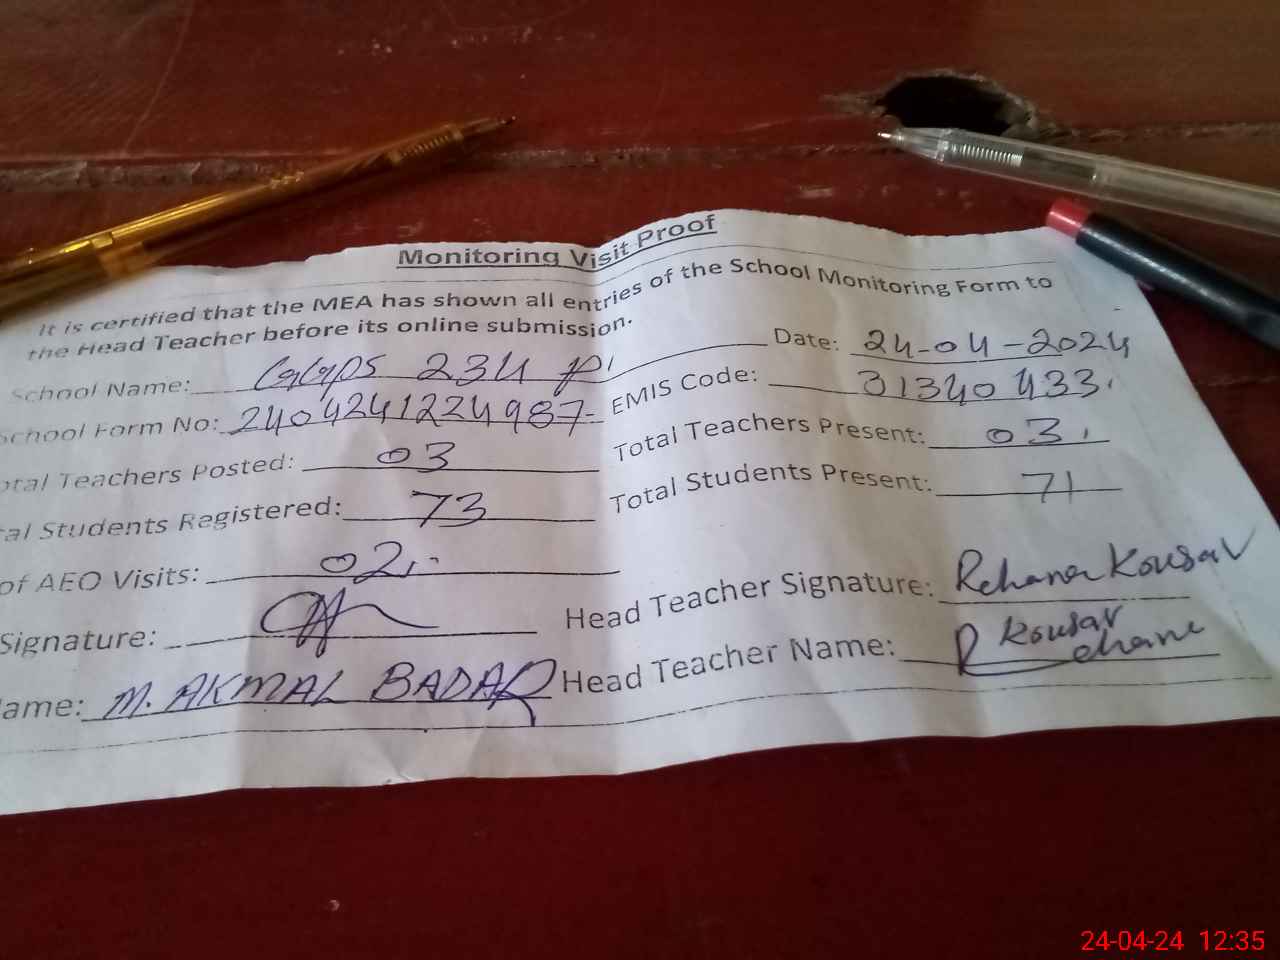 Monitoring Visit Proof
It is certified that the MEA has shown all entries of the School Monitoring Form to
the Head Teacher before its online submission.
School Name: GGPS 234 P/ Date: 24-04-2024
School Form No: 2404241224987 EMIS Code: 31340433
otal Teachers Posted: 03 Total Teachers Present: 03
al Students Registered: 73 Total Students Present: 71
of AEO Visits: 02
Signature: Head Teacher Signature: Rehana Kousar
ame: M. AKMAL BADAR Head Teacher Name: Rehana Kousar
24-04-24 12:35